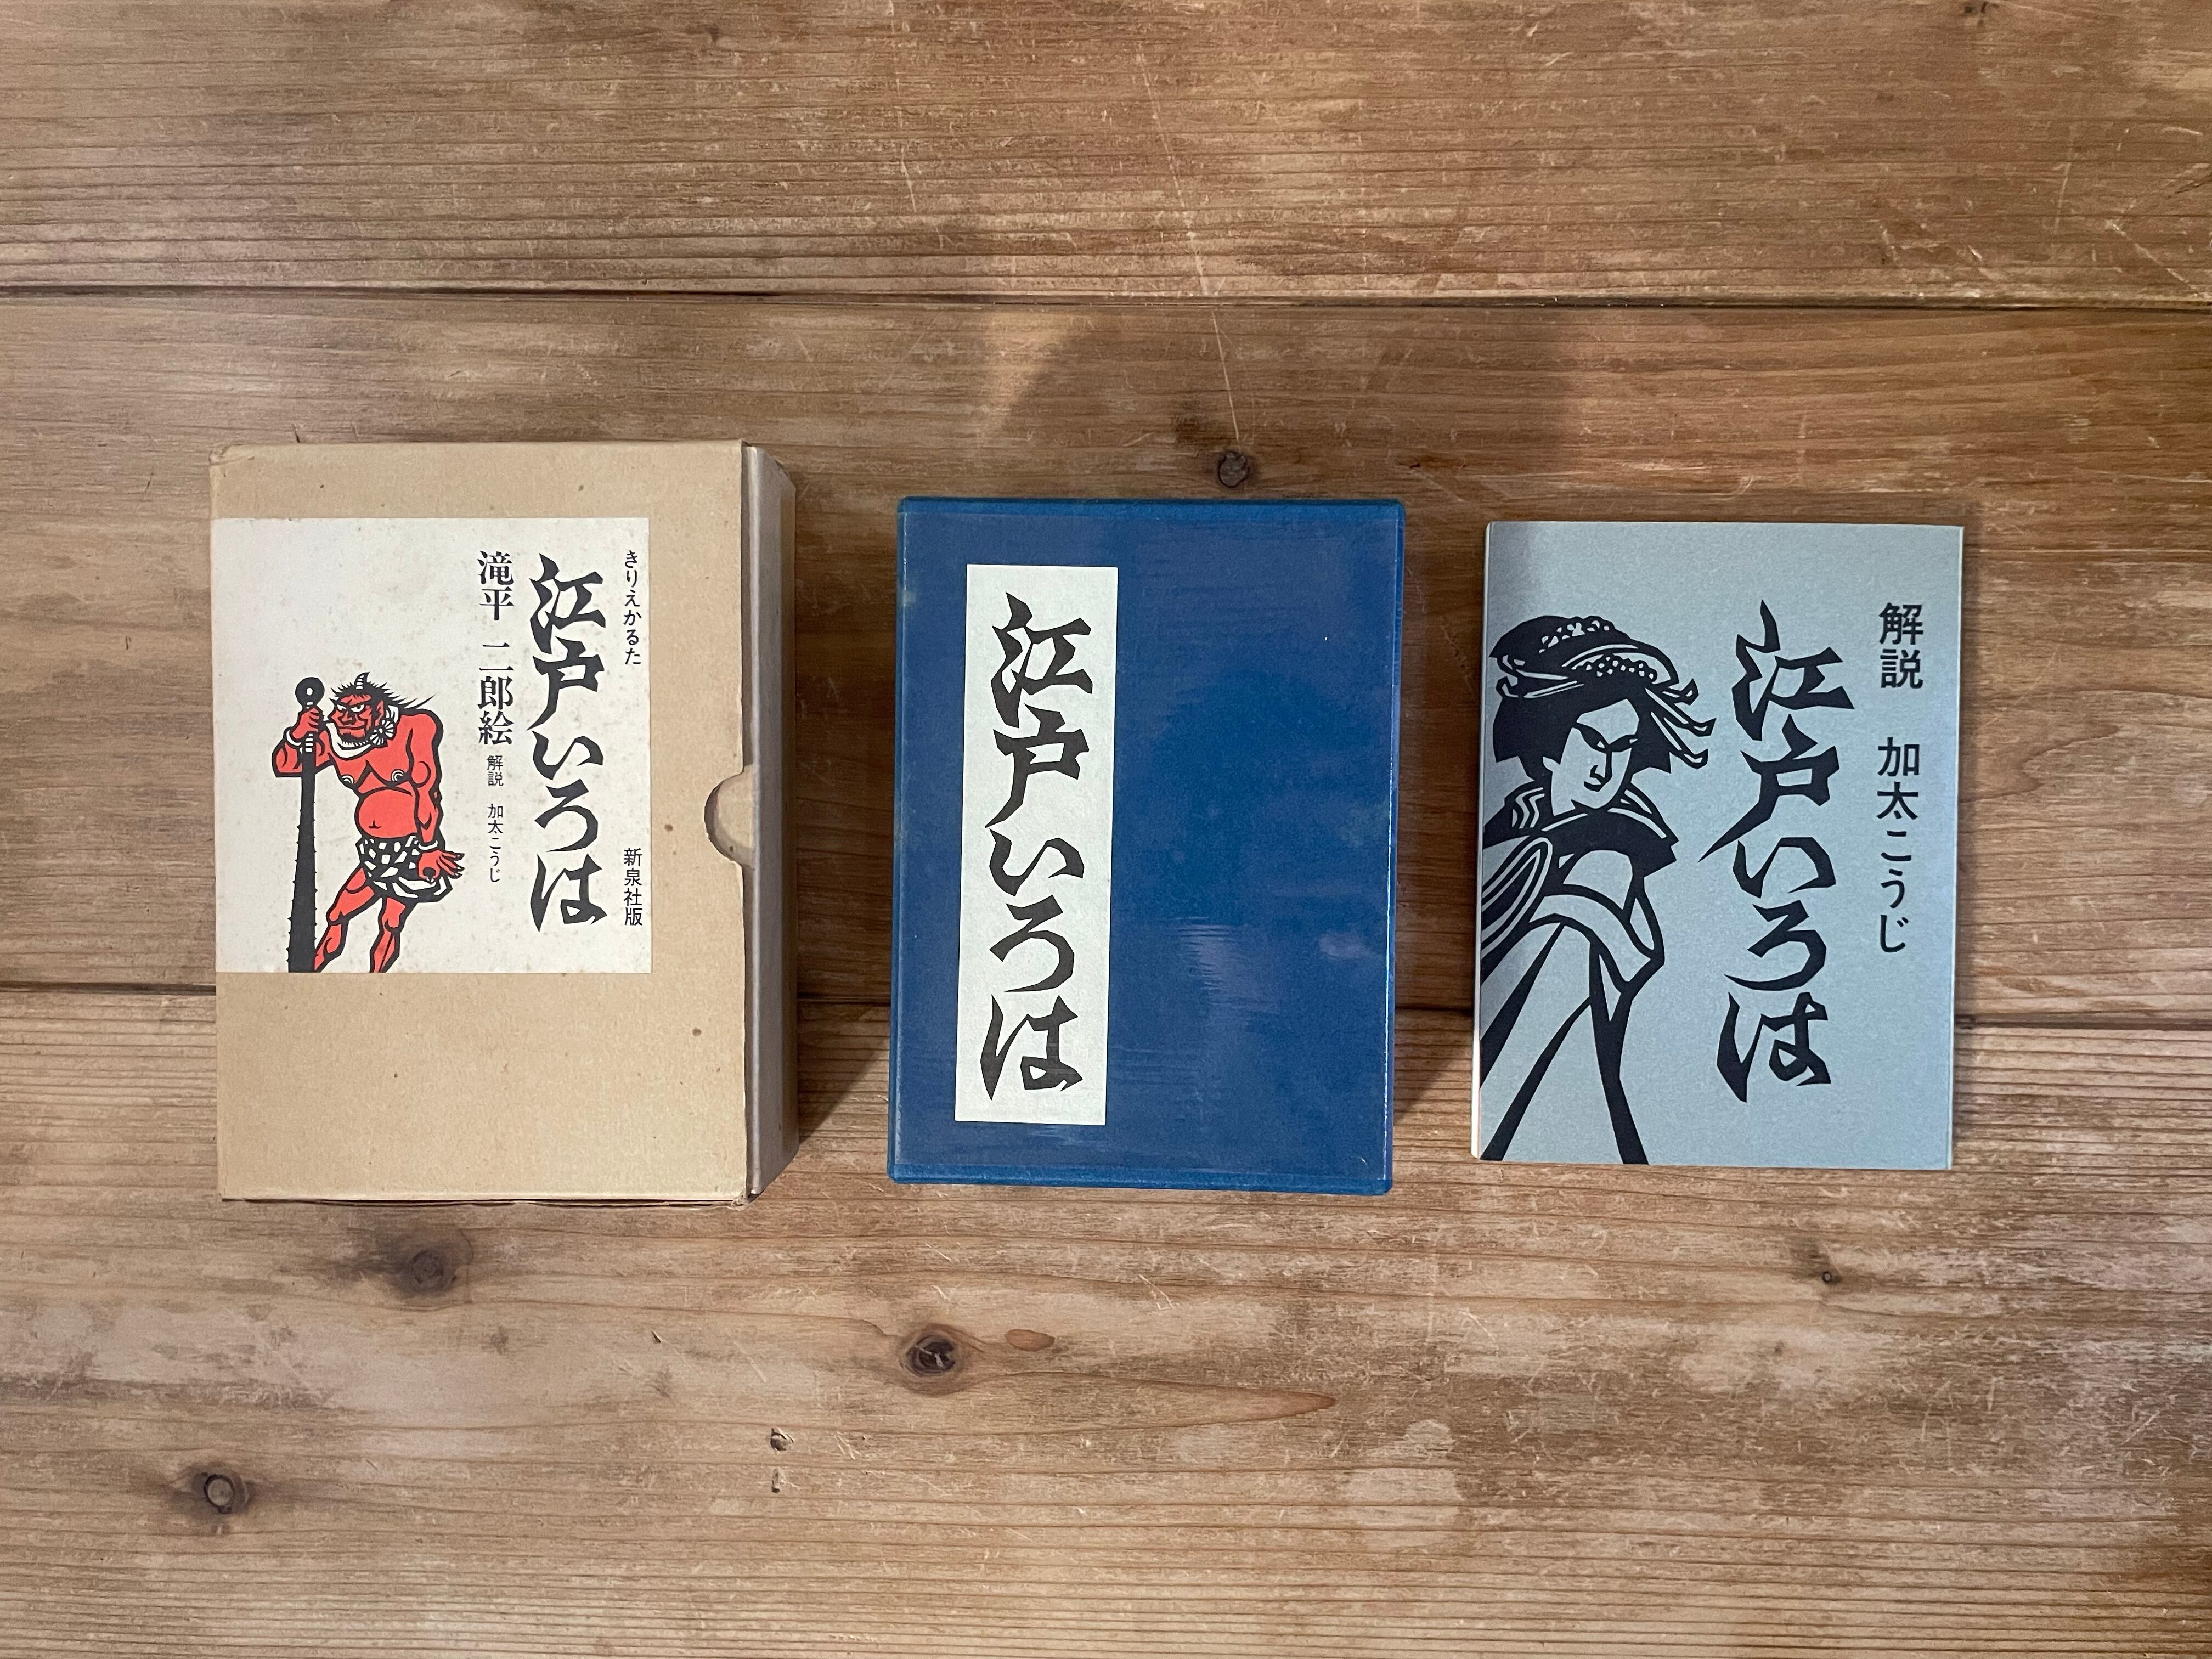 きりえかるた 新泉社版
江戸いろは
滝平 二郎絵 解説 加太こうじ
江戸いろは
解説 加太こうじ
江戸いろは